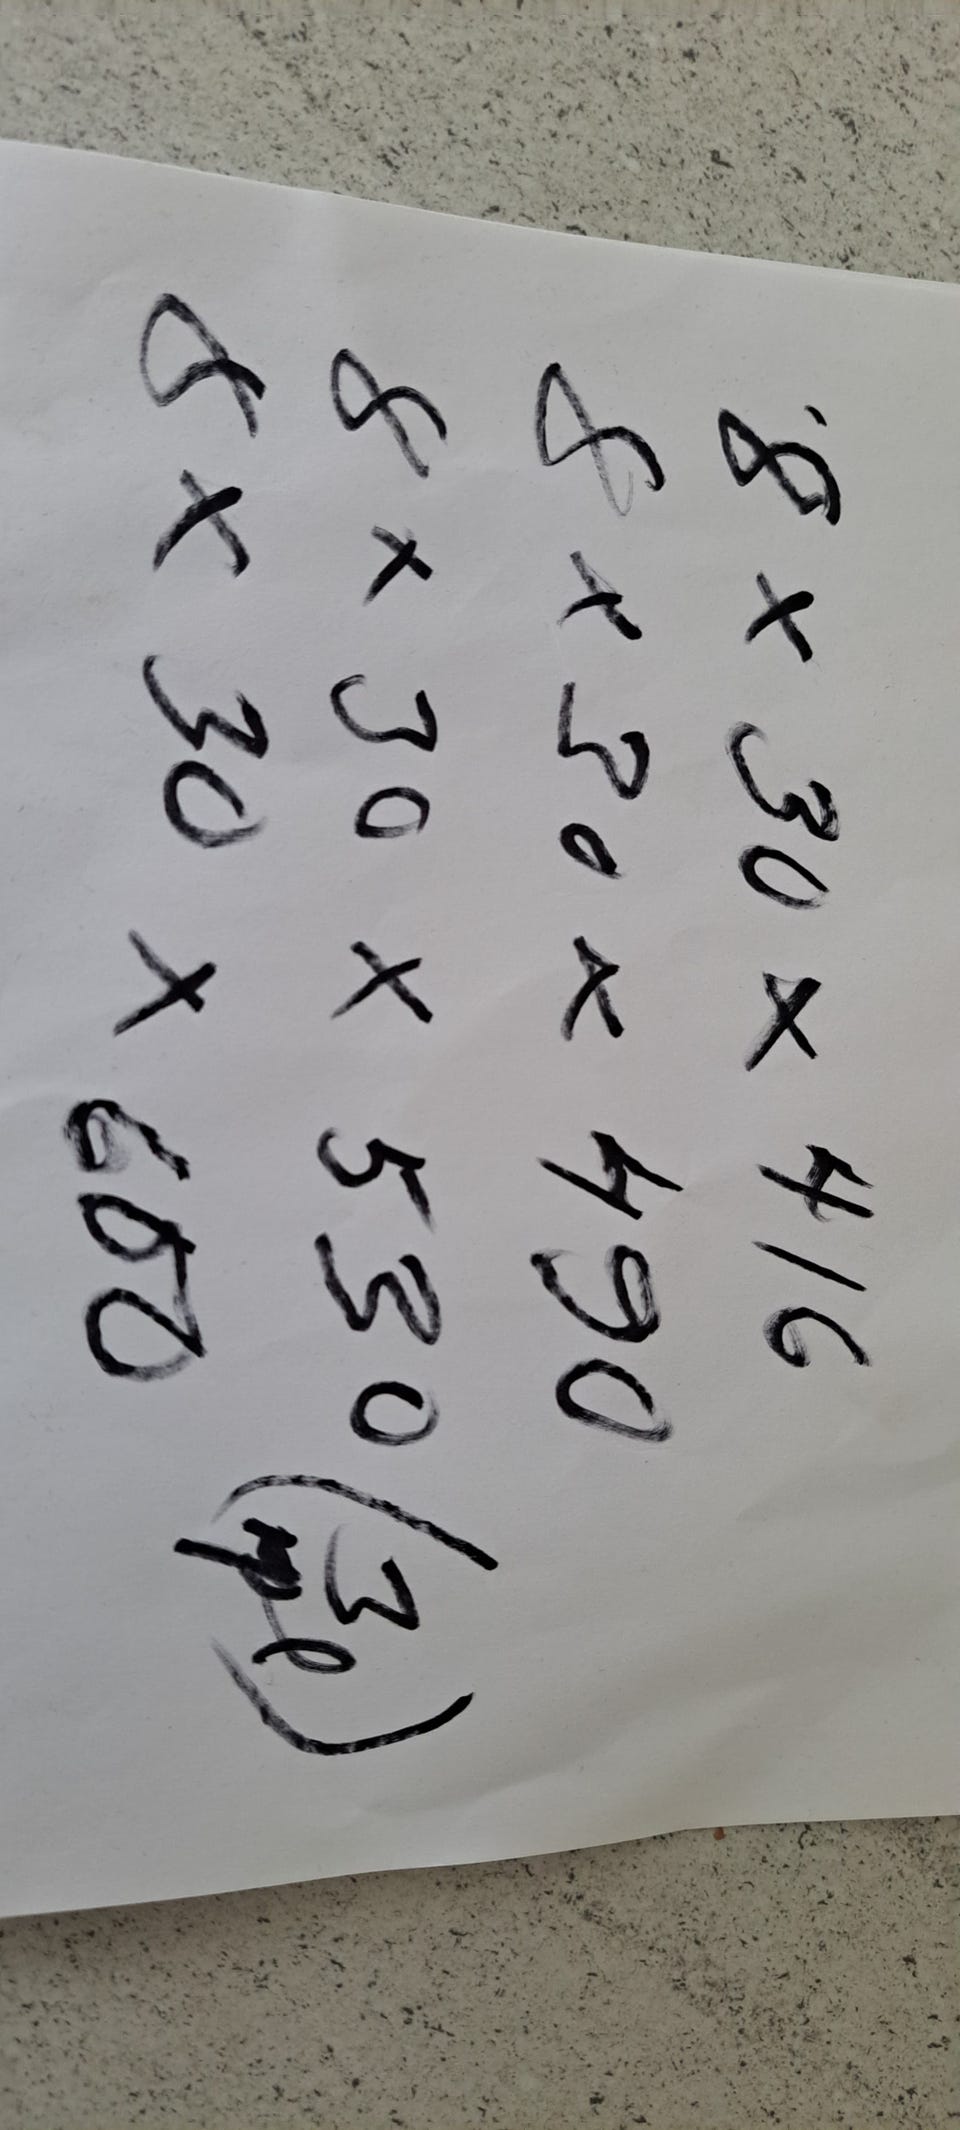 8 x 30 x 416
8 x 30 x 490
8 x 30 x 530 (30)
8 x 30 x 600